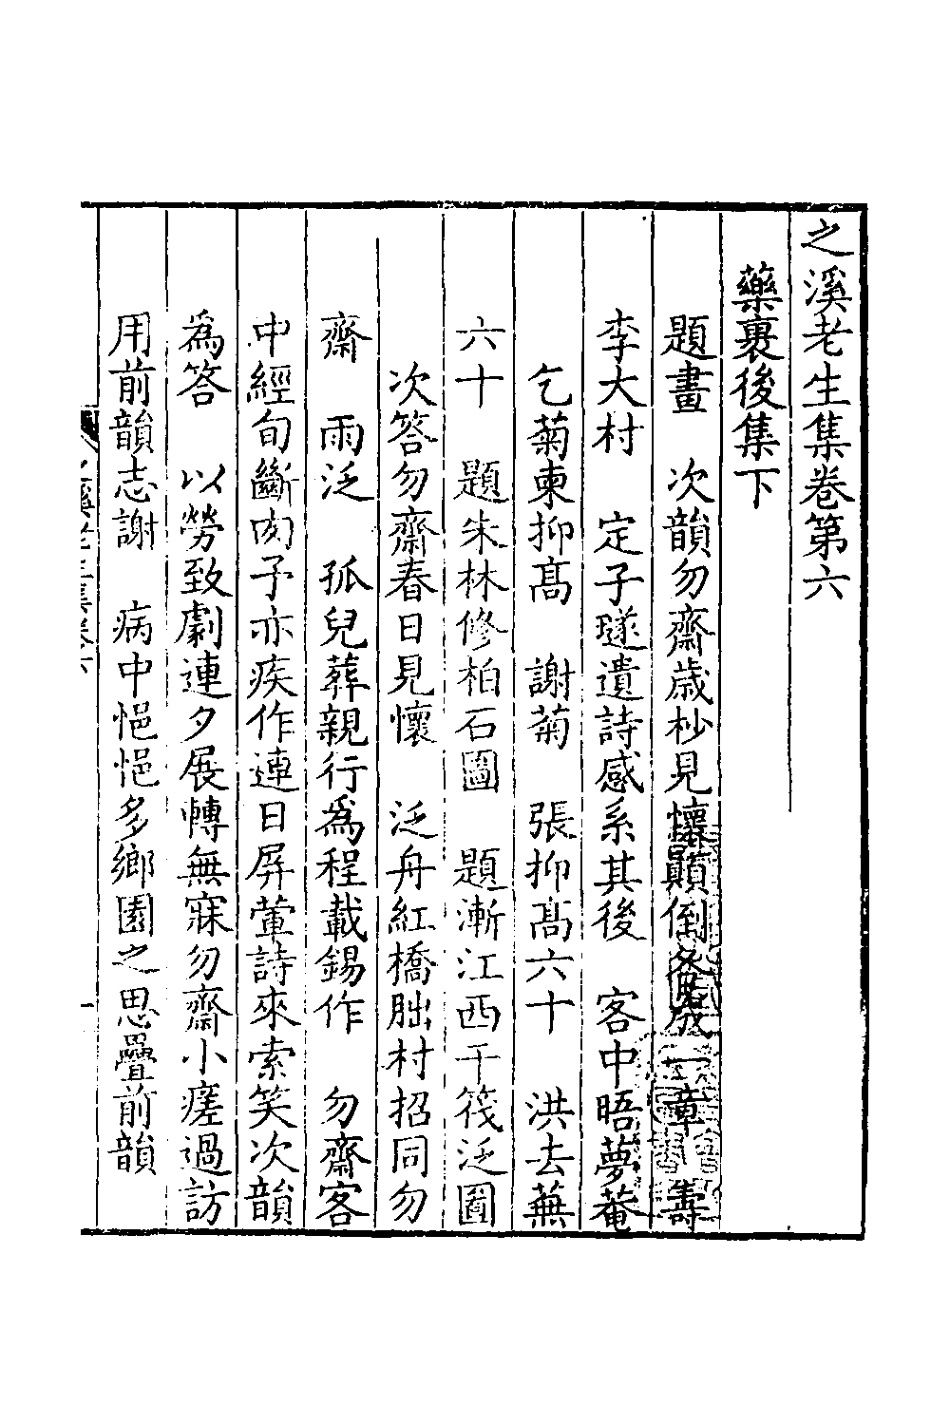 之溪老生集卷第六
藥裹後集下
題畫　次韻勿齋歲杪見懷顛倒各成一章　壽
李大村　定子璲遺詩感系其後　客中晤夢菴
乞菊柬抑髙　謝菊　張抑髙六十　洪去蕪
六十　題朱林修柏石圖　題漸江西干筏泛圖
次答勿齋春日見懷　泛舟紅橋朏村招同勿
齋　雨泛　孤兒葬親行爲程載錫作　勿齋客
中經旬斷肉予亦疾作連日屏葷詩來索笑次韻
爲答　以勞致劇連夕展轉無寐勿齋小瘥過訪
用前韻志謝　病中悒悒多鄉園之思疊前韻